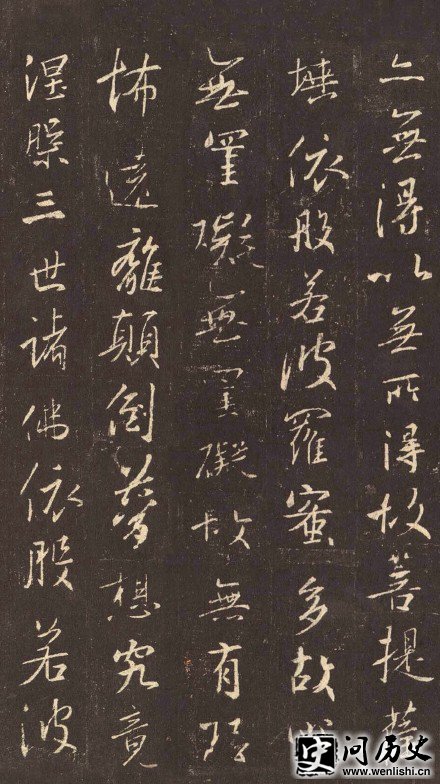 亦無得以無所得故菩提薩
埵依般若波羅蜜多故心
無罣礙無罣礙故無有恐
怖遠離顛倒夢想究竟
涅槃三世諸佛依般若波
问历史
www.wenlishi.cn